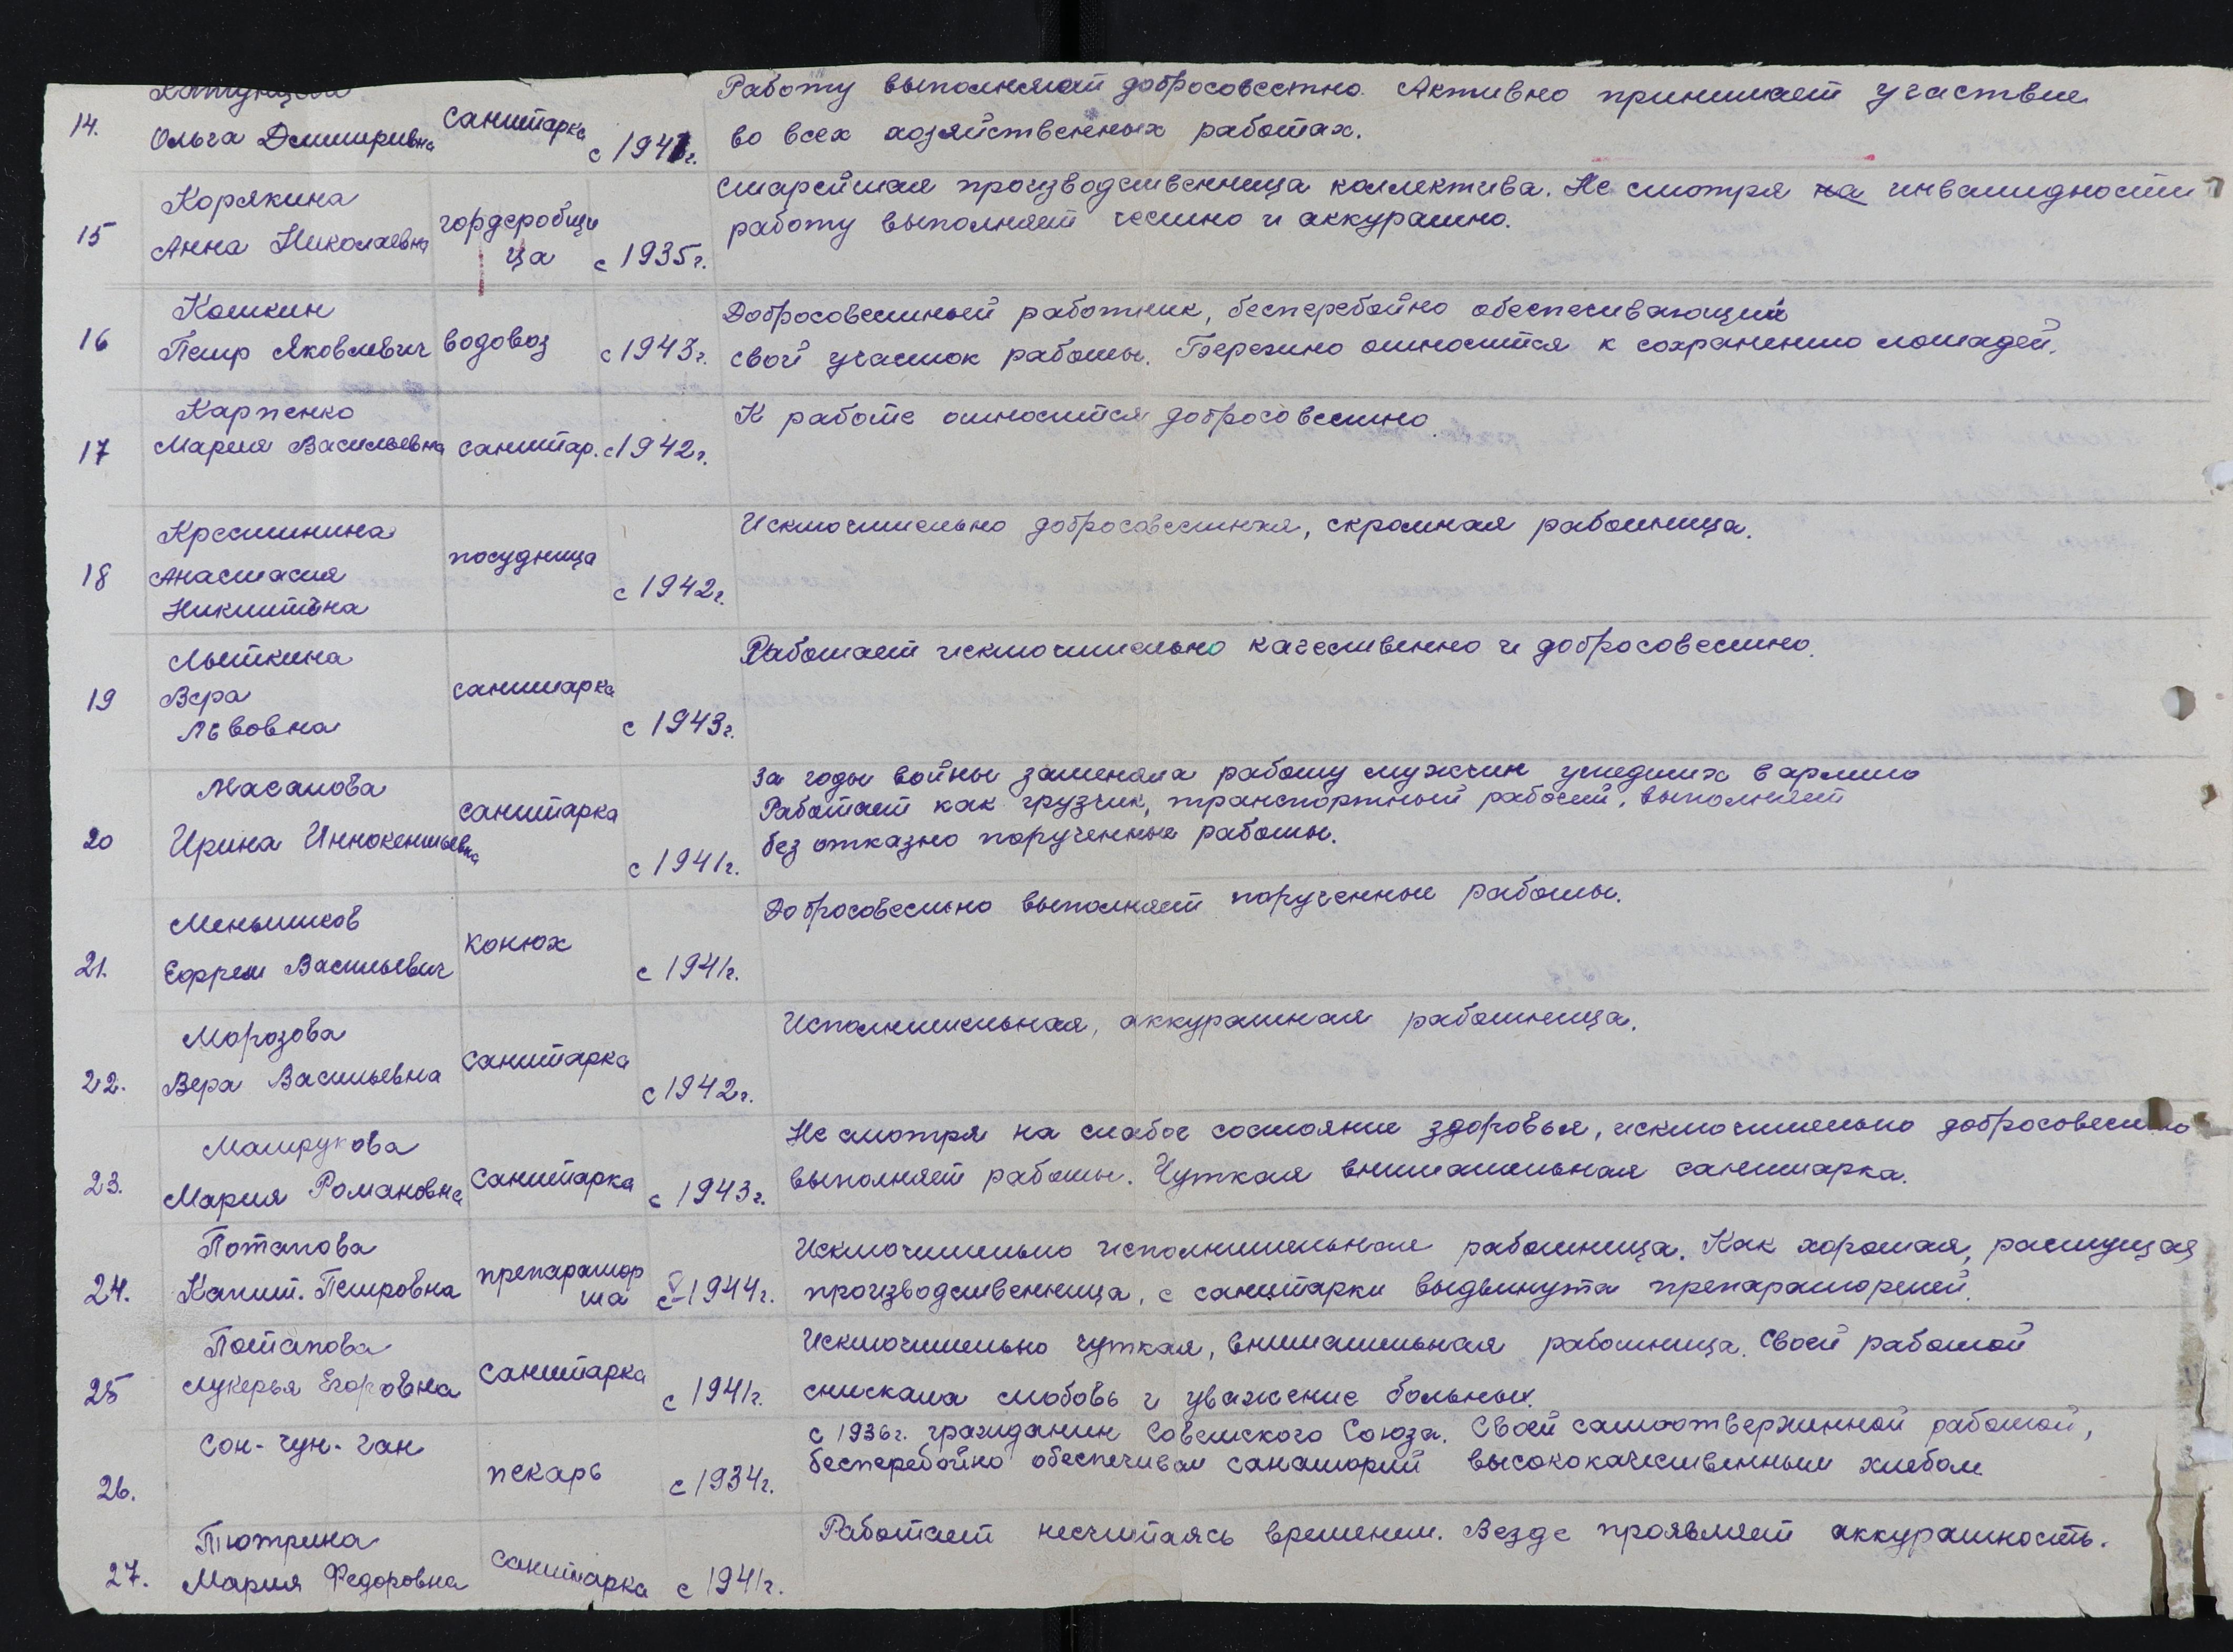 14.
Ольга Дмитривна
санитарка
с 1941г.
Работу выполняет добросовестно. Активно принимает участвие
во всех хозяйственных работах.
15
Корякина
Анна Николаевна
гордеробщи
ца
с 1935г.
Старейшая производственница коллектива. Не смотря на инвалидности
работу выполняет честно и аккуратно.
16
Кошкин
Петр Яковлевич
водовоз
с 1943г.
Добросовестный работник, бесперебойно обеспечивающий
свой участок работы. Бережно относится к сохранению лошадей.
17
Карпенко
Мария Васильевна
санитар.
с 1942г.
К работе относится добросовестно.
18
Крестинина
Анастасия
Никитична
посудница
с 1942г.
Исключительно добросовестная, скромная работница.
19
Лыткина
Вера
Львовна
санитарка
с 1943г.
Работает исключительно качественно и добросовестно.
20
Масанова
Ирина Иннокентьевна
санитарка
с 1941г.
За годы войны заменяла работу мужчин ушедших в армию
Работает как грузчик, транспортный рабочий, выполняет
без отказно порученные работы.
21.
Меньшиков
Ефрем Васильевич
конюх
с 1941г.
Добросовестно выполняет порученные работы.
22.
Морозова
Вера Васильевна
санитарка
с 1942г.
Исполнительная, аккуратная работница.
23.
Машрукова
Мария Романовна
санитарка
с 1943г.
Не смотря на слабое состояние здоровья, исключительно добросовестно
выполняет работы. Чуткая внимательная санитарка.
24.
Потапова
Капит. Петровна
препаратор
ша
с V-1944г.
Исключительно исполнительная работница. Как хорошая, растущая
производственница, с санитарки выдвинута препараторшей.
25
Потапова
Лукерья Егоровна
санитарка
с 1941г.
Исключительно чуткая, внимательная работница. Своей работой
снискала любовь и уважение больных.
26.
Сон-чун-чан
пекарь
с 1934г.
с 1936г. гражданин Советского Союза. Своей самоотверженной работой,
бесперебойно обеспечивал санаторий высококачественным хлебом
27.
Тютрина
Мария Федоровна
санитарка
с 1941г.
Работает несчитаясь временем. Везде проявляет аккуратность.